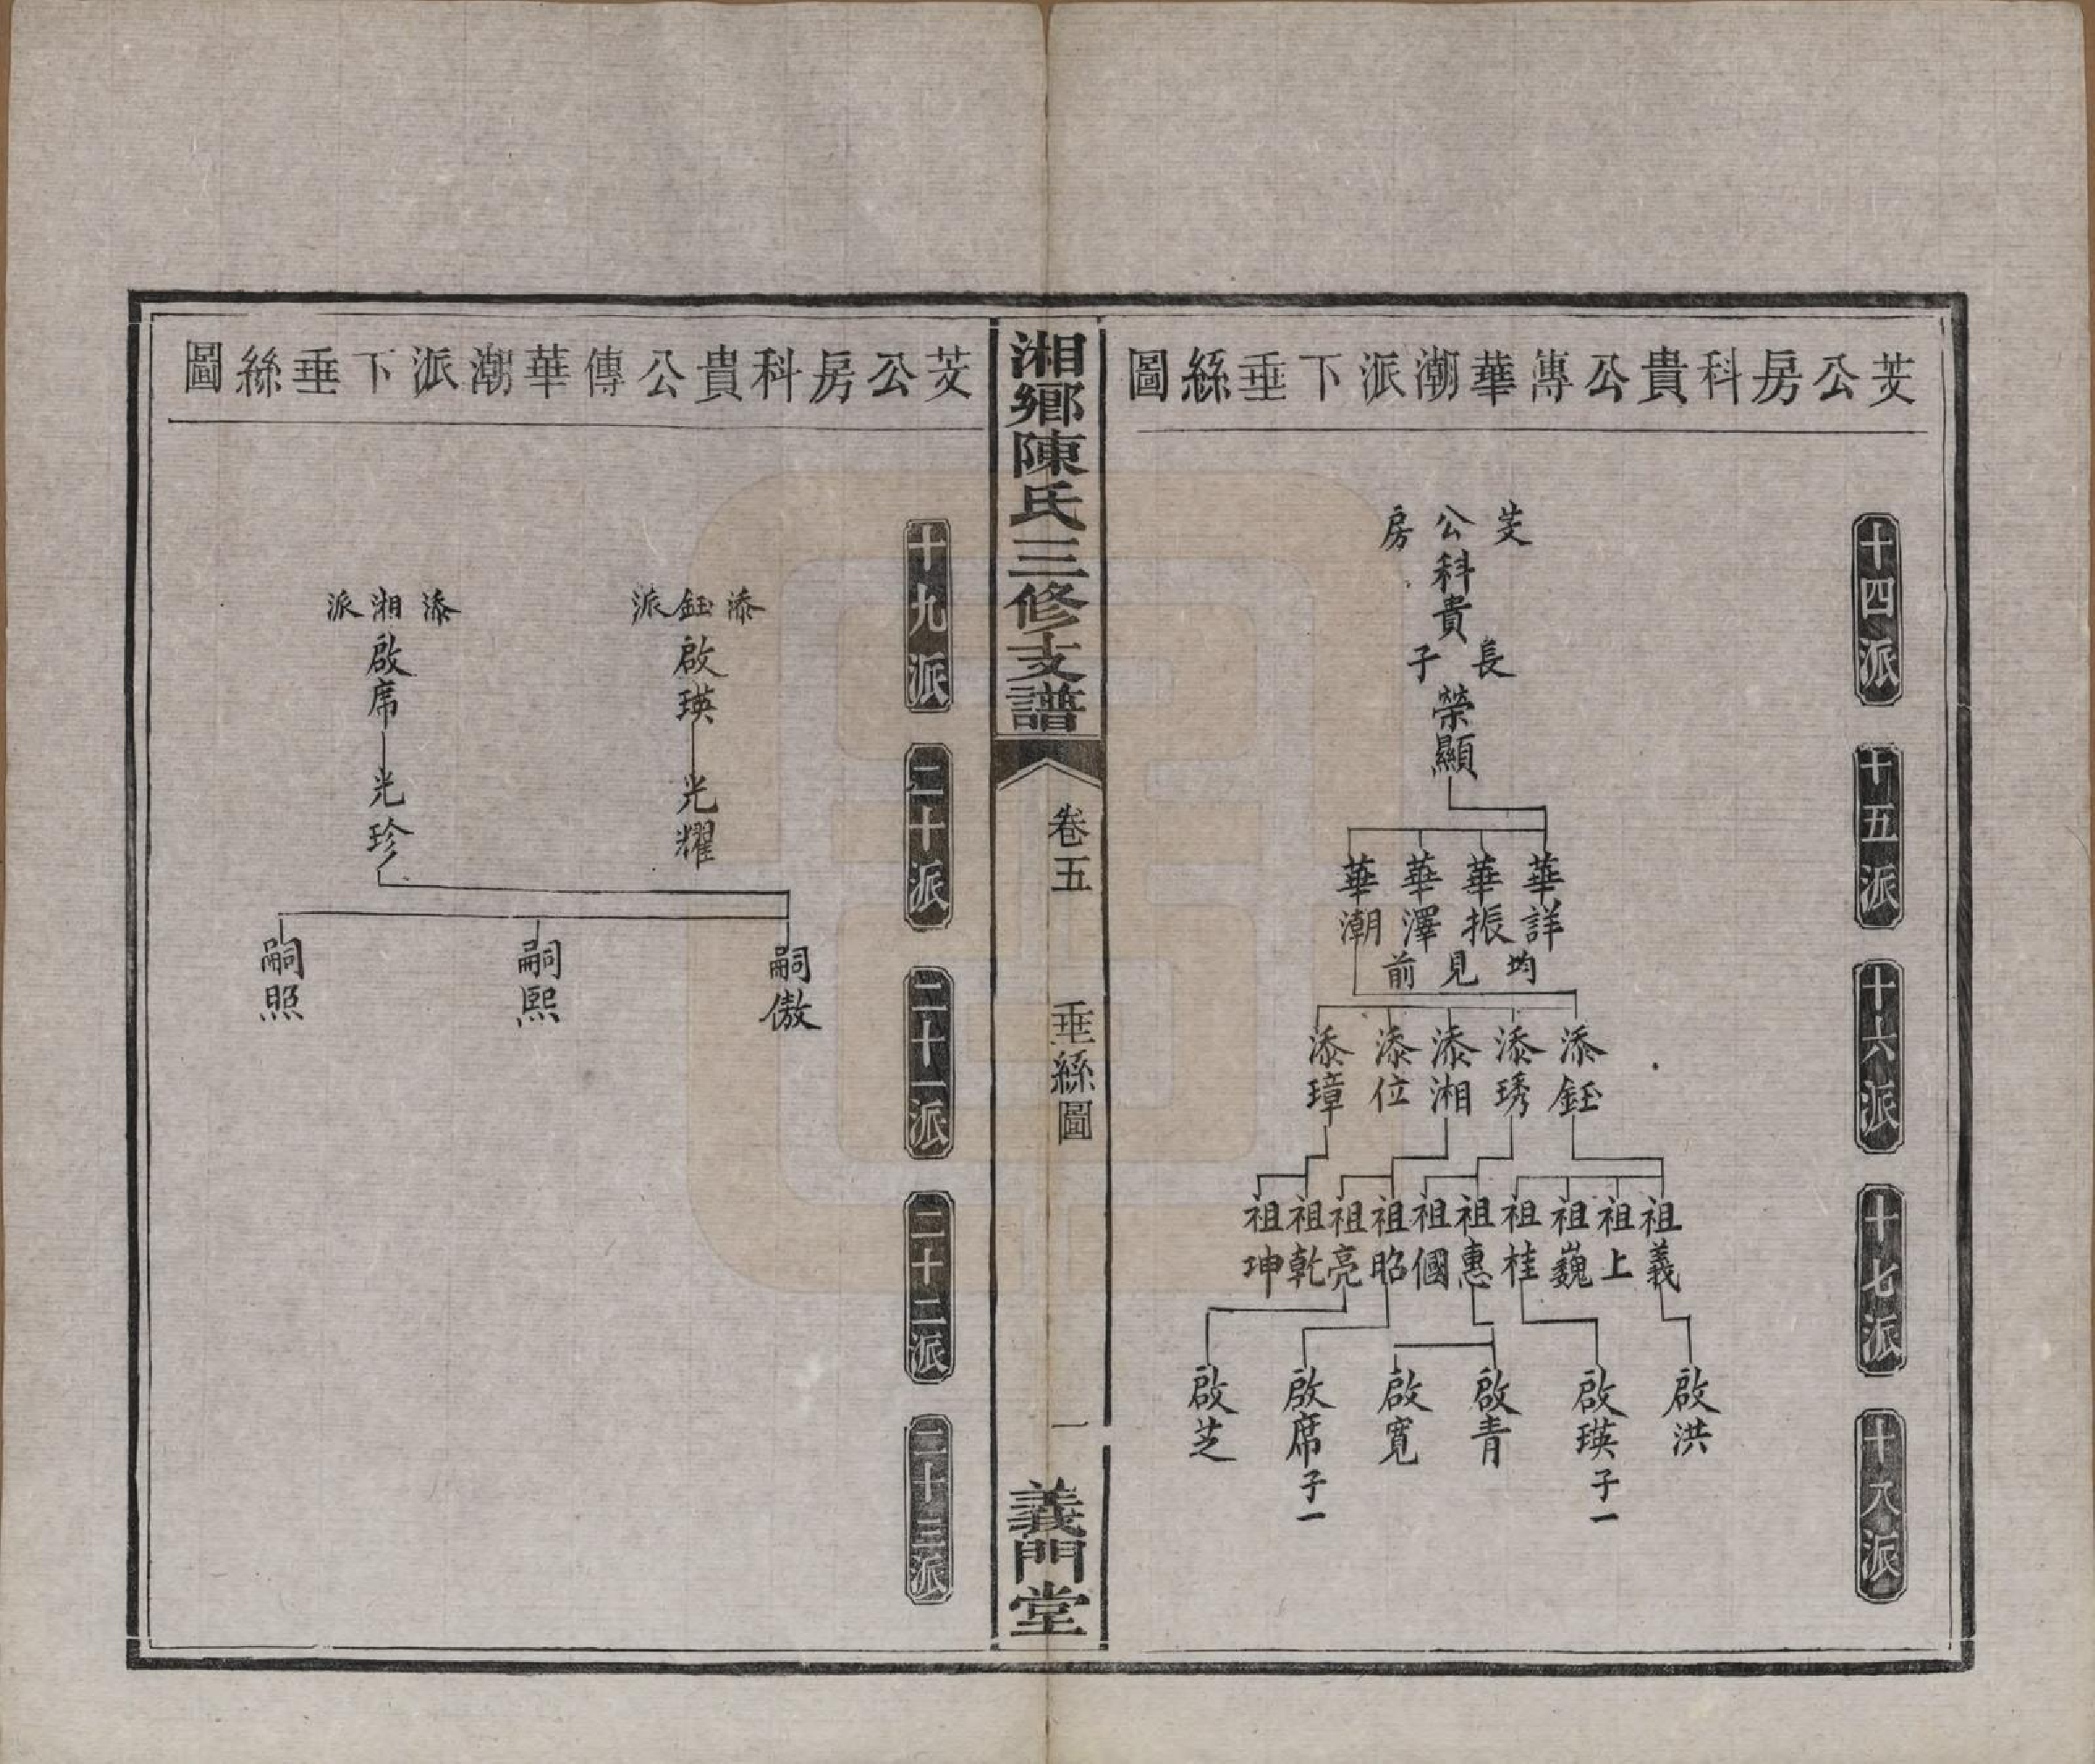 芰公房科貴公傳華潮派下垂絲圖
十四派
十五派
十六派
十七派
十八派
芰公房
科貴
長子
榮顯
華詳
華振
華澤
華潮
均見前
添鈺
添琇
添湘
添位
添璋
祖義
祖上
祖巍
祖桂
祖惠
祖國
祖昭
祖亮
祖乾
祖坤
啟洪
啟瑛子一
啟青
啟寬
啟席子一
啟芝
湘鄉陳氏三修支譜
卷五
垂絲圖
一
義門堂
芰公房科貴公傳華潮派下垂絲圖
十九派
二十派
二十一派
二十二派
二十三派
添鈺派
啟瑛
光耀
添湘派
啟席
光珍
嗣傲
嗣熙
嗣照